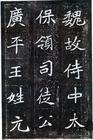 魏故侍中太
保領司徒公
廣平王姓元